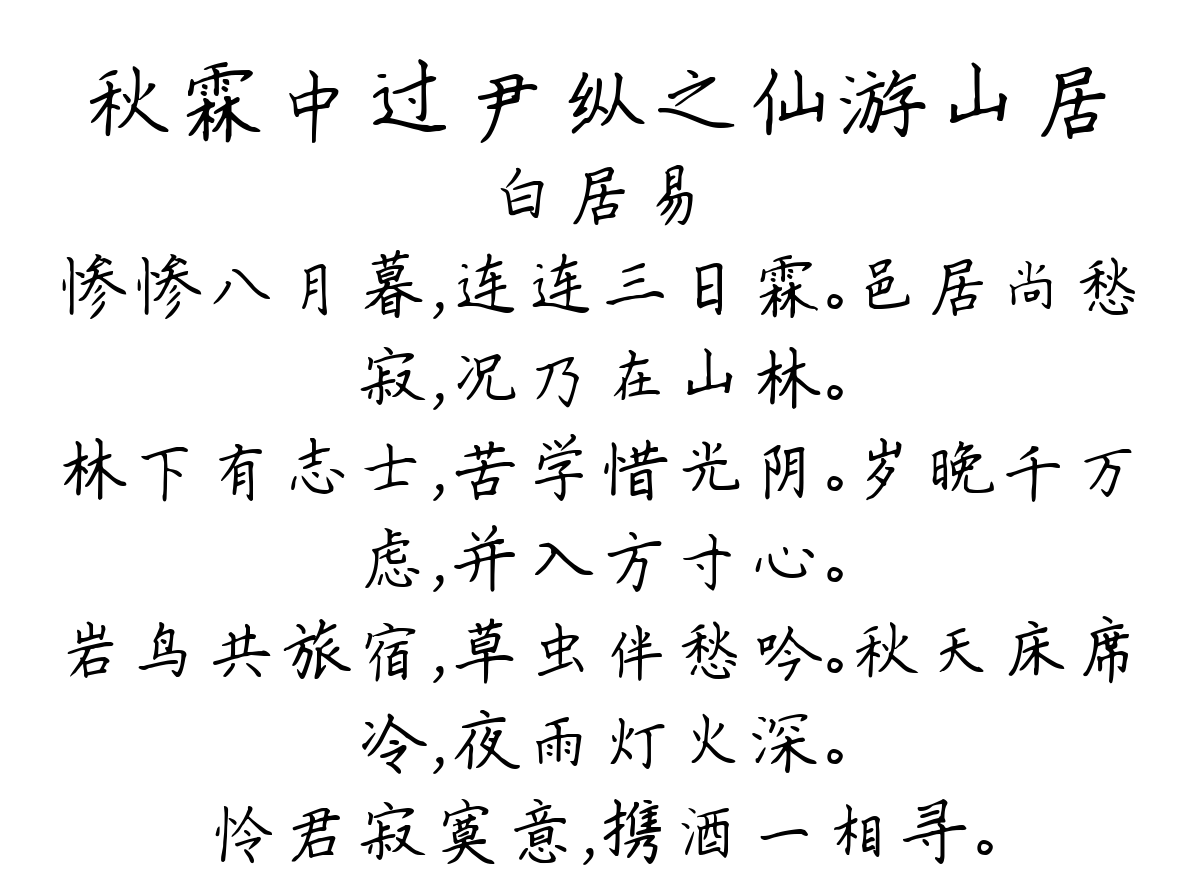 秋霖中过尹纵之仙游山居
白居易
惨惨八月暮,连连三日霖。邑居尚愁
寂,况乃在山林。
林下有志士,苦学惜光阴。岁晚千万
虑,并入方寸心。
岩鸟共旅宿,草虫伴愁吟。秋天床席
冷,夜雨灯火深。
怜君寂寞意,携酒一相寻。